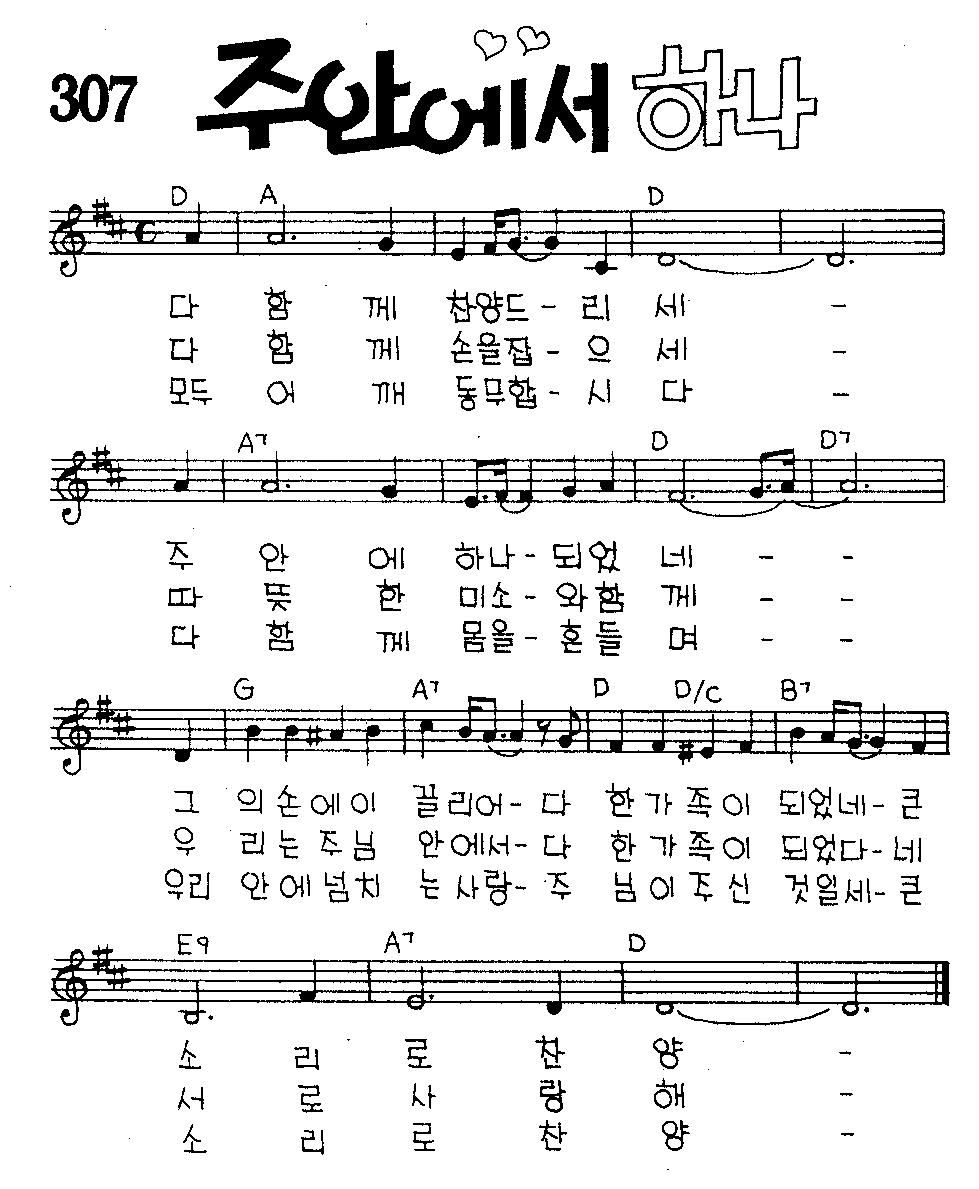 307 주안에서 하나
D A D
다 함 께 찬양드 - 리 세 -
다 함 께 손을잡 - 으 세 -
모두 어 깨 동무합 - 시 다 -
A7 D D7
주 안 에 하나 - 되었 네 - -
따 뜻 한 미소 - 와함 께 - -
다 함 께 몸을 - 흔들 며 - -
G A7 D D/C B7
그 의손에이 끌리어 - 다 한가족이 되었네 - 큰
우 리는주님 안에서 - 다 한가족이 되었다 - 네
우리 안에넘치 는사랑 - 주 님이주신 것일세 - 큰
E9 A7 D
소 리 로 찬 양 -
서 로 사 랑 해 -
소 리 로 찬 양 -